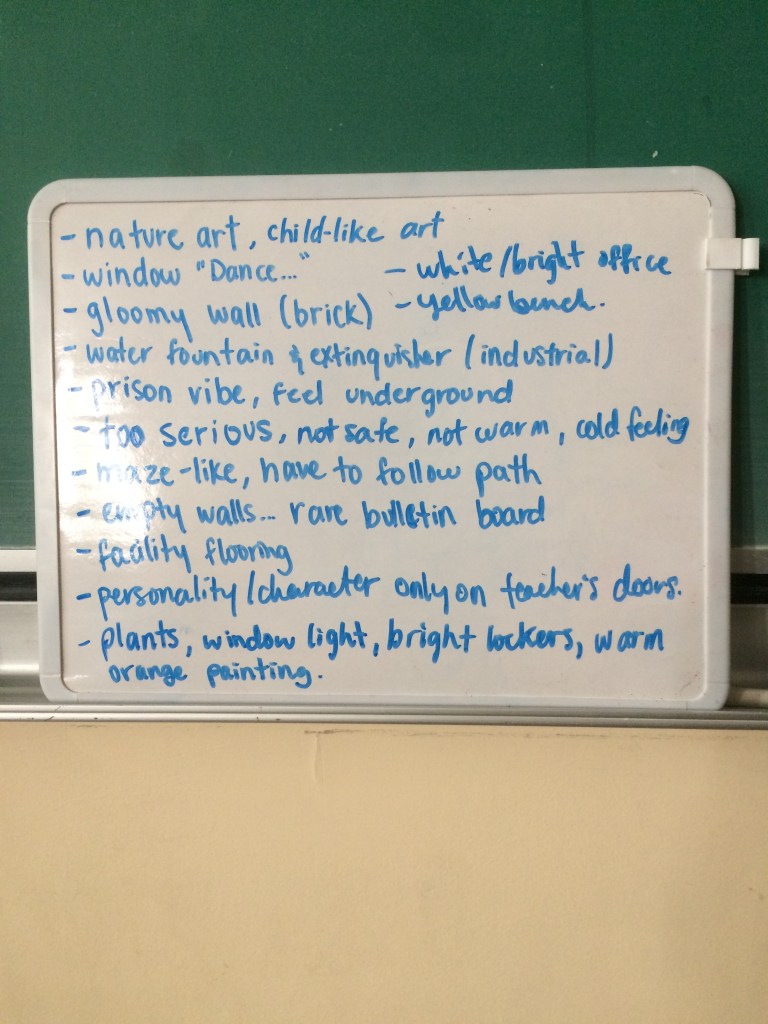 - nature art, child-like art
- window "Dance..."
- white/bright office
- gloomy wall (brick)
- yellow bench.
- water fountain & extinguisher (industrial)
- prison vibe, feel underground
- too serious, not safe, not warm, cold feeling
- maze-like, have to follow path
- empty walls... rare bulletin board
- facility flooring
- personality/character only on teacher's doors.
- plants, window light, bright lockers, warm
orange painting.